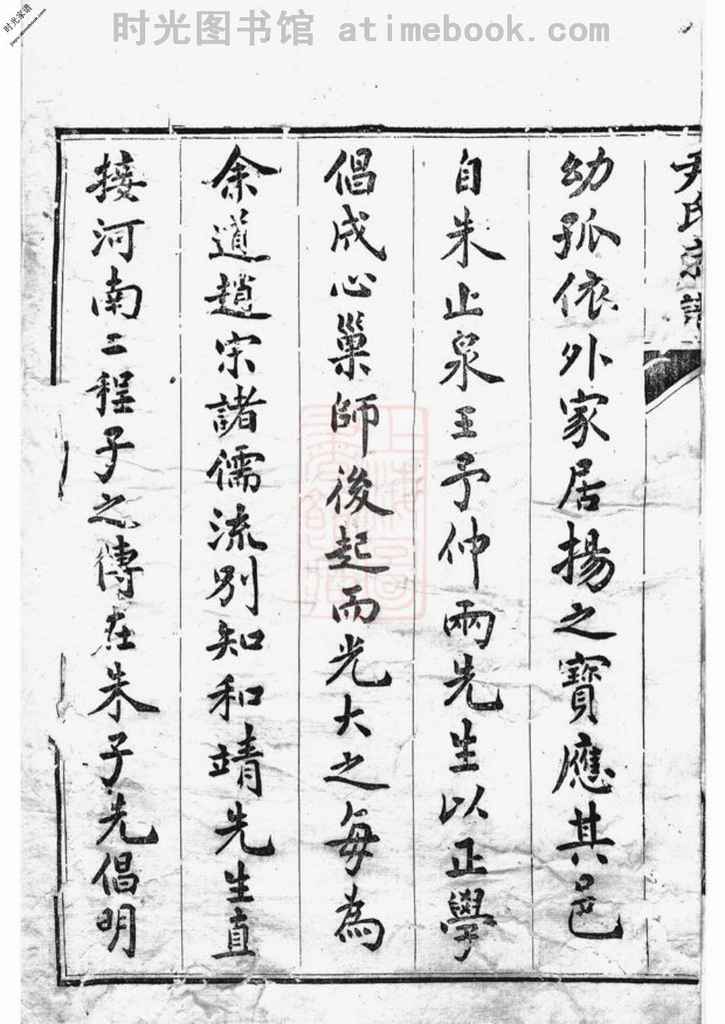 时光图书馆 atimebook.com
时光家谱
尹氏宗譜
幼孤依外家居揚之寶應其邑
自朱止泉王予仲兩先生以正學
倡成心巢師後起而光大之每為
余道趙宋諸儒流別知和靖先生直
接河南二程子之傳在朱子先倡明